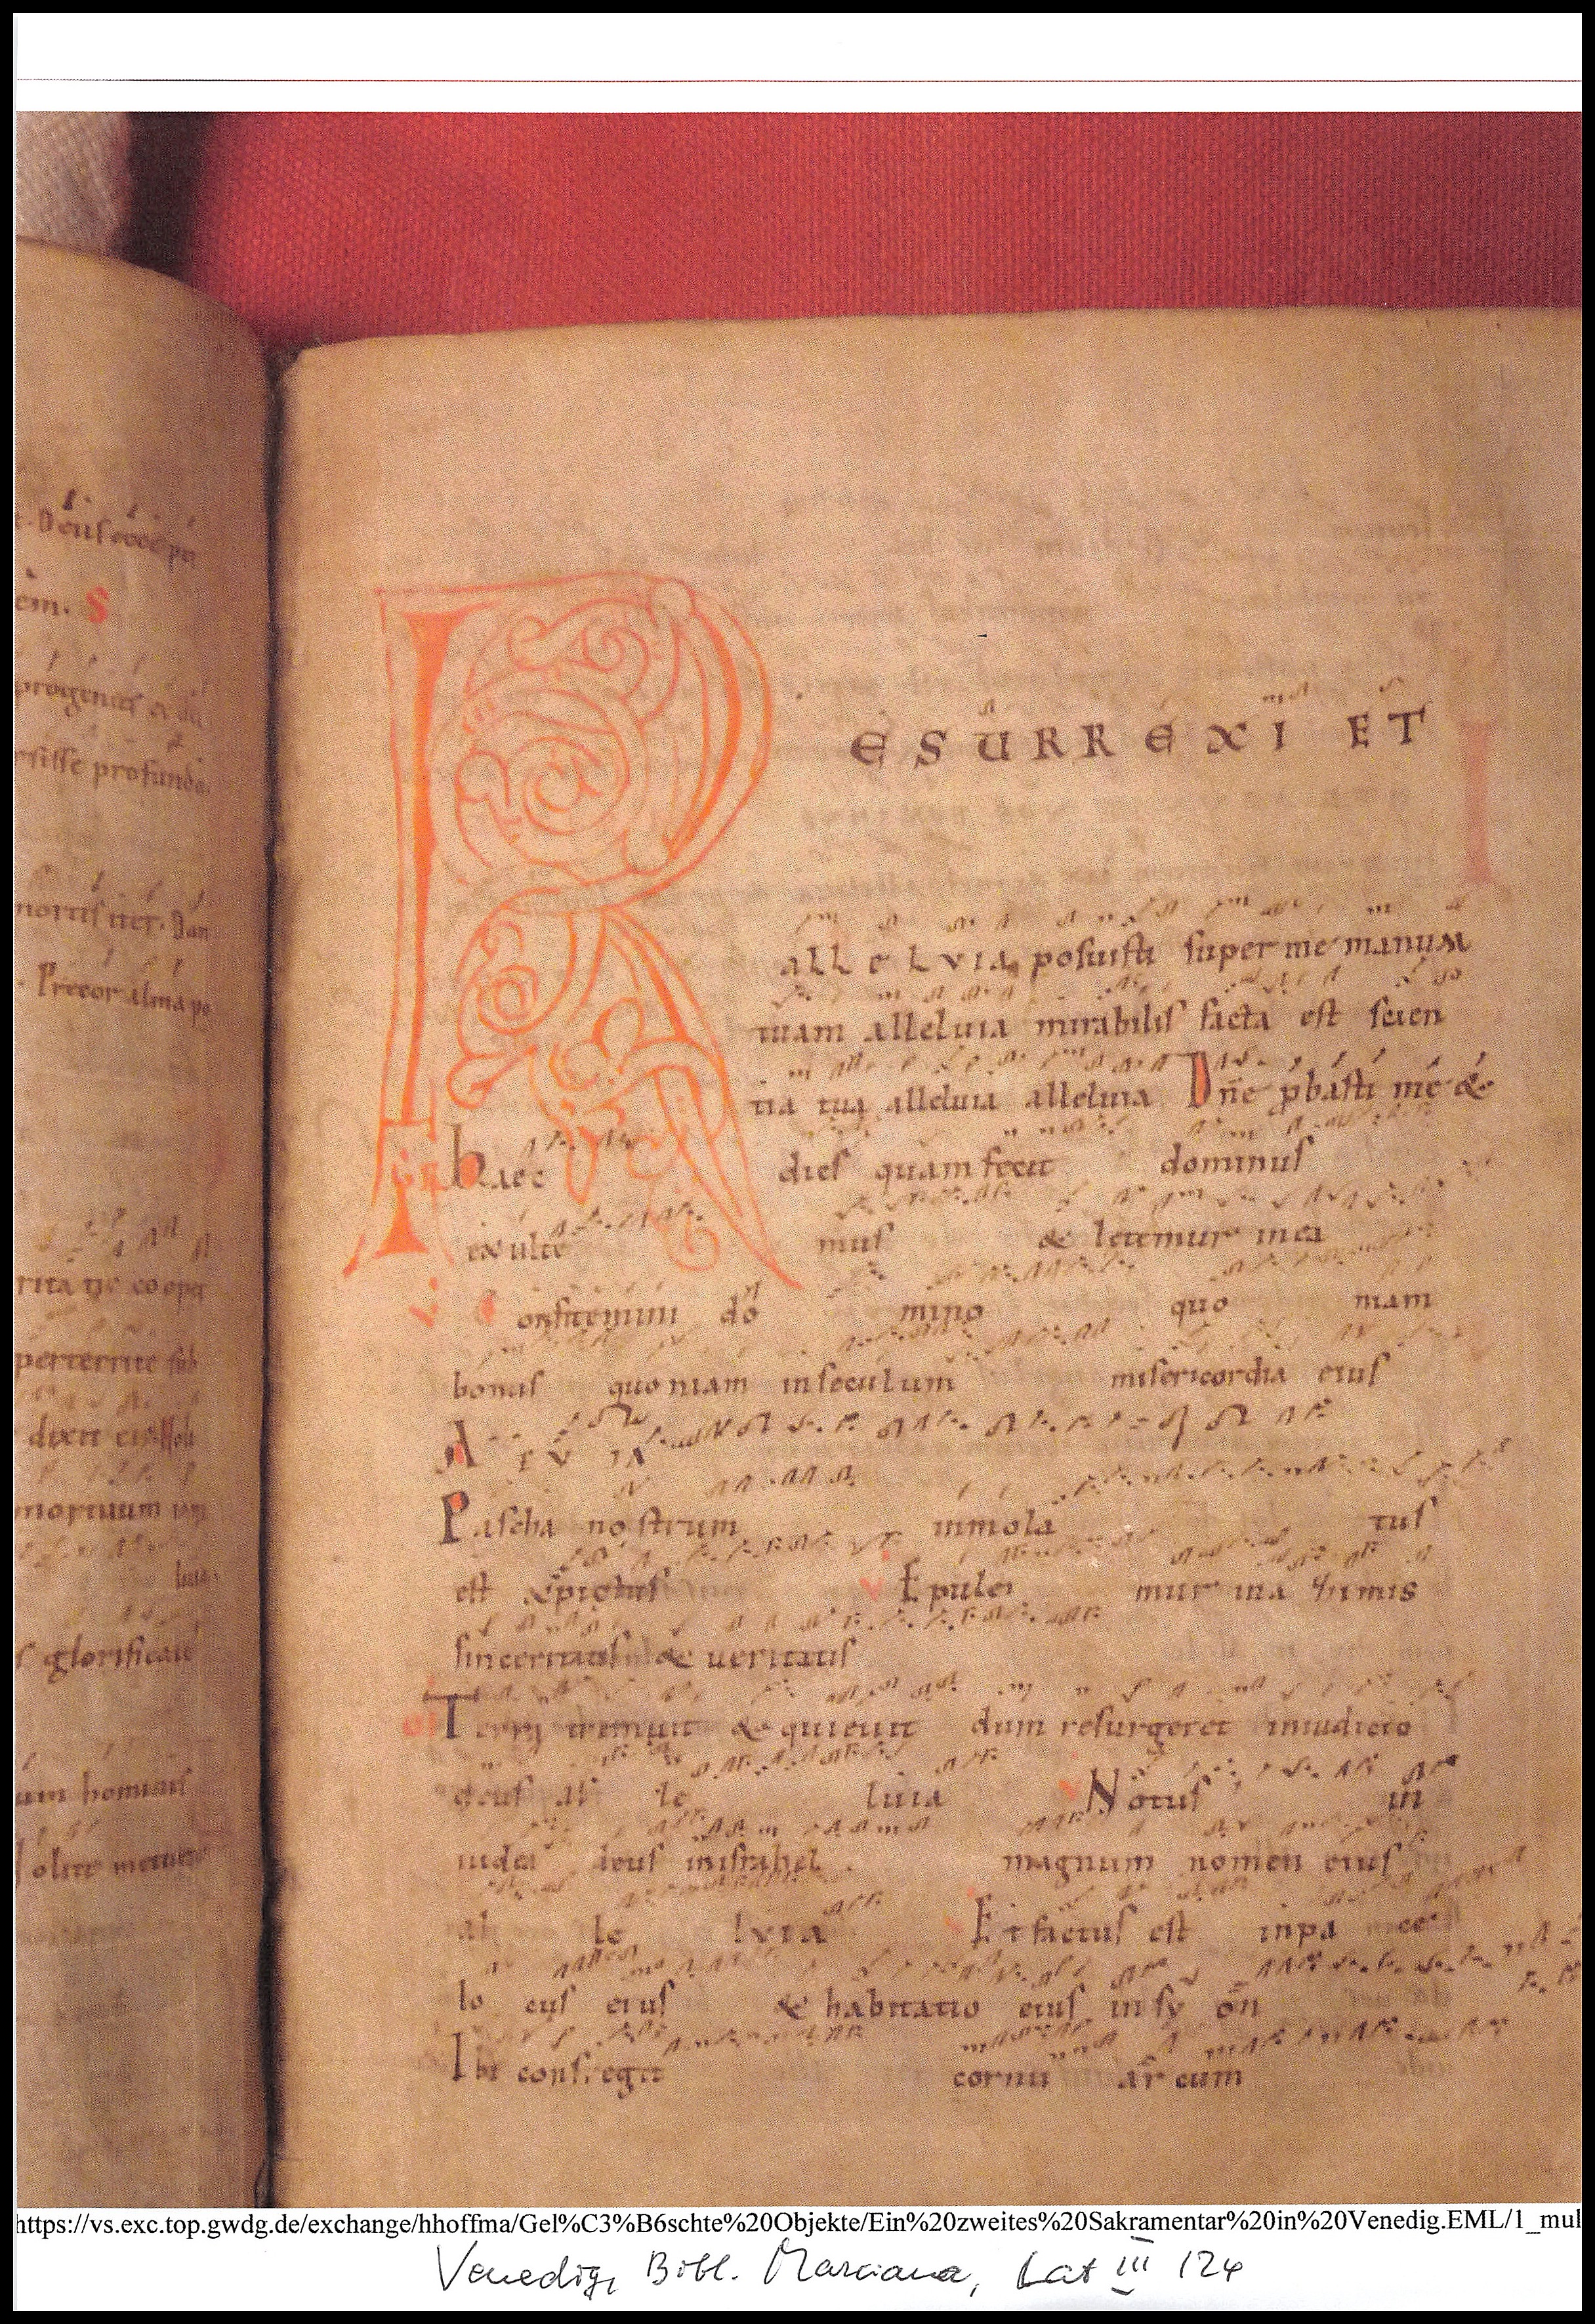 t. Deus ecce per
em. S
progenies
rsisse profundo.
mortis iter. Dan
Precor alma po
rita
perterrite sub
dixit
mortuum
luia.
s glorificavit
um hominis
R ESURREXI ET
allelvia posuisti super me manum
tuam alleluia mirabilis facta est scien
tia tua alleluia alleluia Dn̄e ꝓbasti me &
GR haec dies quam fecit dominus
exulte mus & letemur in ea
V Confitemini do mino quo niam
bonus quoniam in seculum misericordia eius
A EV IA
Pascha nostrum immola tus
est xp̄ictus V Epule mur in a himis
sinceritatis & veritatis
of Terra tremuit & quieuit dum resurgeret iniudicio
deus al le luia V Notus in
iudea deus inisrahel magnum nomen eius
al le lvia Et factus est inpa ce
lo cus eius & habitatio eius in sy on
Ibi confregit cornu ar cum
https://vs.exc.top.gwdg.de/exchange/hhoffma/Gel%C3%B6schte%20Objekte/Ein%20zweites%20Sakramentar%20in%20Venedig.EML/1_mul
Venedig, Bibl. Marciana, Lat III 124